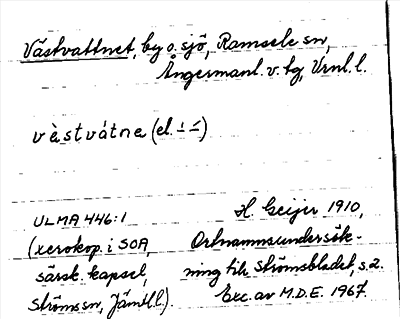 Västvattnet, by o. sjö, Ramsele sn,
Ångermanl. v. tg, Vrnl. l.
vèstvátne (el. ∸ –́)
ULMA 446:1
(xerokop. i SOA,
särsk. kapsel,
Ströms sn, Jämtl.l.)
H. Geijer 1910,
Ortnamnsundersök-
ning till Strömsbladet, s. 2.
Exc. av M.D.E. 1967.